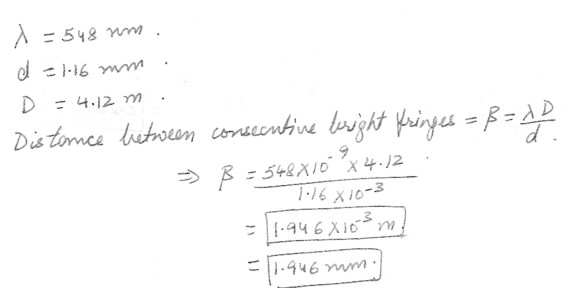 λ = 548 nm.
d = 1.16 mm.
D = 4.12 m.
Distance between consecutive bright fringes = β = λD/d.
⇒ β = 548×10⁻⁹ × 4.12 / 1.16 ×10⁻³
= 1.946 ×10⁻³ m
= 1.946 mm.